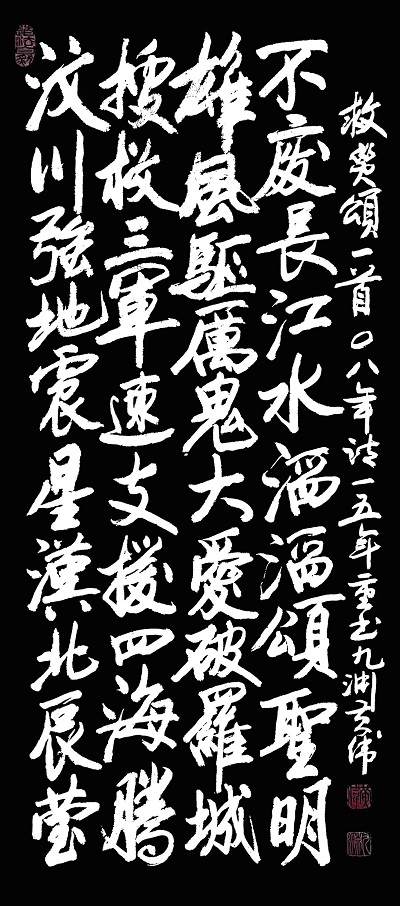 汶川強地震星漢北辰瑩
搜救三軍速支援四海騰
雄風驅厲鬼大愛破羅城
不廢長江水滔滔頌聖明
救 頌一首〇八年詩一五年重書九淵